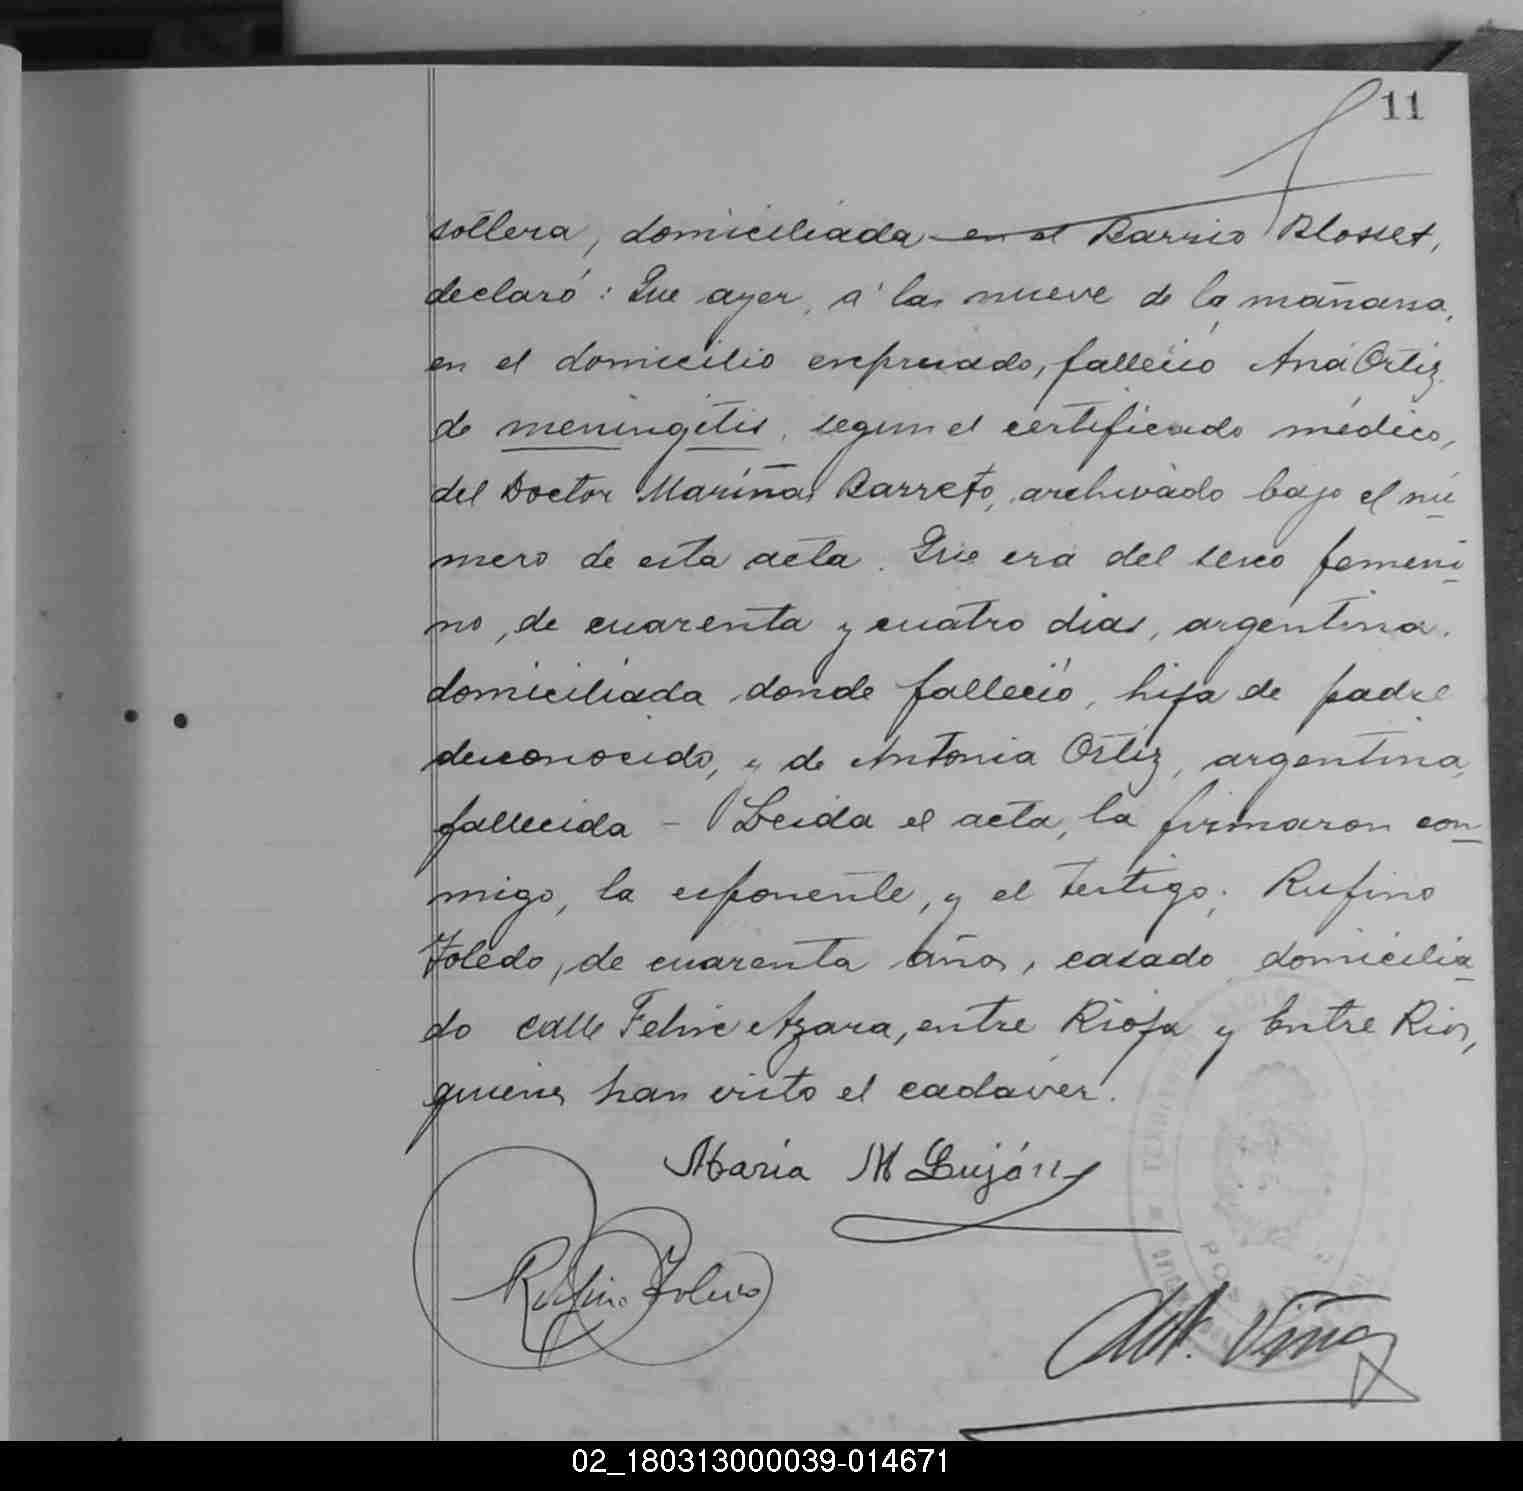 11
soltera, domiciliada en el Barrio Blosset,
declaró: Que ayer, á las nueve de la mañana,
en el domicilio expresado, falleció Ana Ortiz
de meningitis, segun el certificado médico,
del Doctor Mariña Barreto, archivado bajo el nú
mero de esta acta. Que era del sexo femeni
no, de cuarenta y cuatro dias, argentina.
domiciliada donde falleció, hija de padre
desconocido, y de Antonia Ortiz, argentina,
fallecida - Leida el acta, la firmaron con
migo, la exponente, y el testigo; Rufino
Toledo, de cuarenta años, casado domicilia
do calle Felix Azara, entre Rioja y Entre Rios,
quienes han visto el cadáver.
María M Luján
Rufino Toledo
02_180313000039-014671